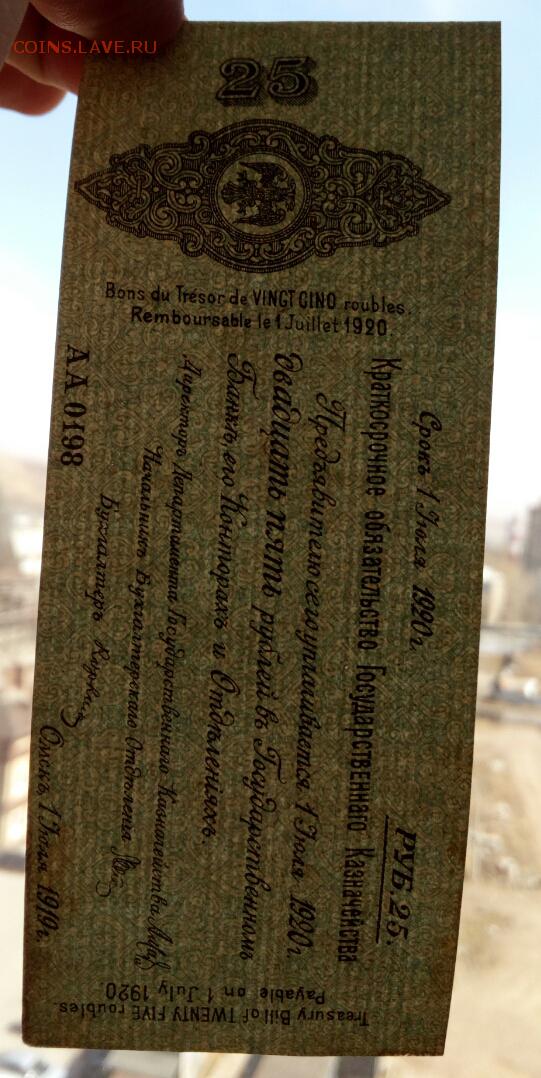 COINS.LAVE.RU
25
Bons du Trésor de VINGT CINQ roubles.
Remboursable le 1 Juillet 1920.
Срокъ 1 Іюля 1920 г.
РУБ 25.
Краткосрочное обязательство Государственнаго Казначейства
Предъявителю сего уплачивается 1 Іюля 1920 г.
двадцать пять рублей въ Государственномъ
Банкѣ, его Конторахъ и Отдѣленіяхъ.
Директоръ Департамента Государственнаго Казначейства
Начальникъ Бухгалтерскаго Отдѣленія
Бухгалтеръ
АА 0198
Омскъ, 1 Іюля 1919 г.
Treasury Bill of TWENTY FIVE roubles.
Payable on 1 July 1920.